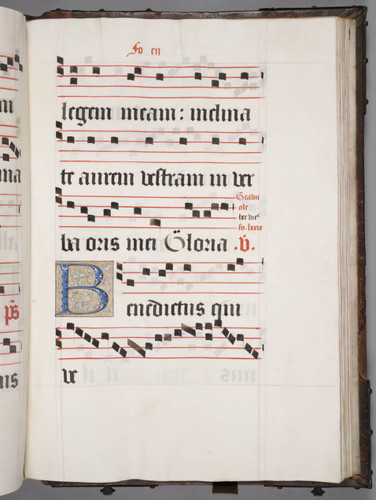 fo cii
legem meam: inclina
te aurem vestram in ver
ba oris mei Gloria .v.
Benedictus qui
ve